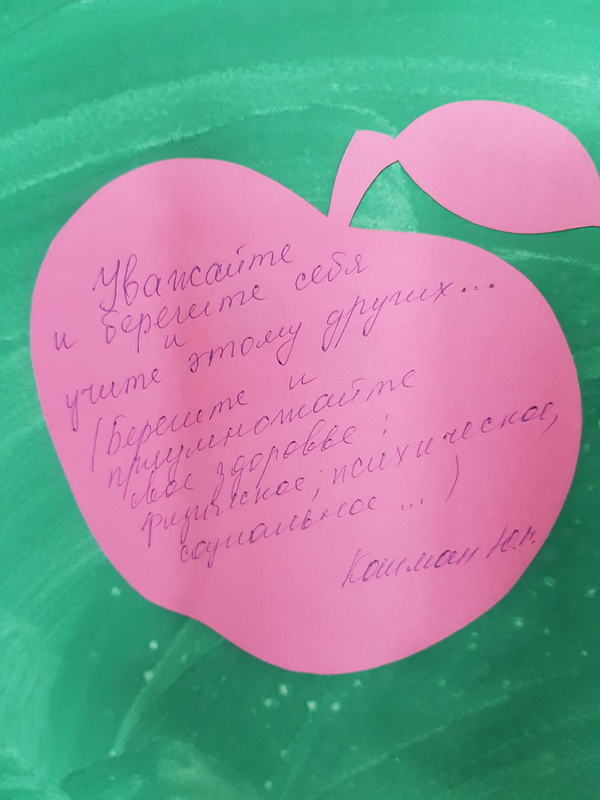 Уважайте
и берегите себя
и
учите этому других...
(Берегите и
приумножайте
свое здоровье:
физическое, психическое,
социальное ... )
Кошман Ю.Н.